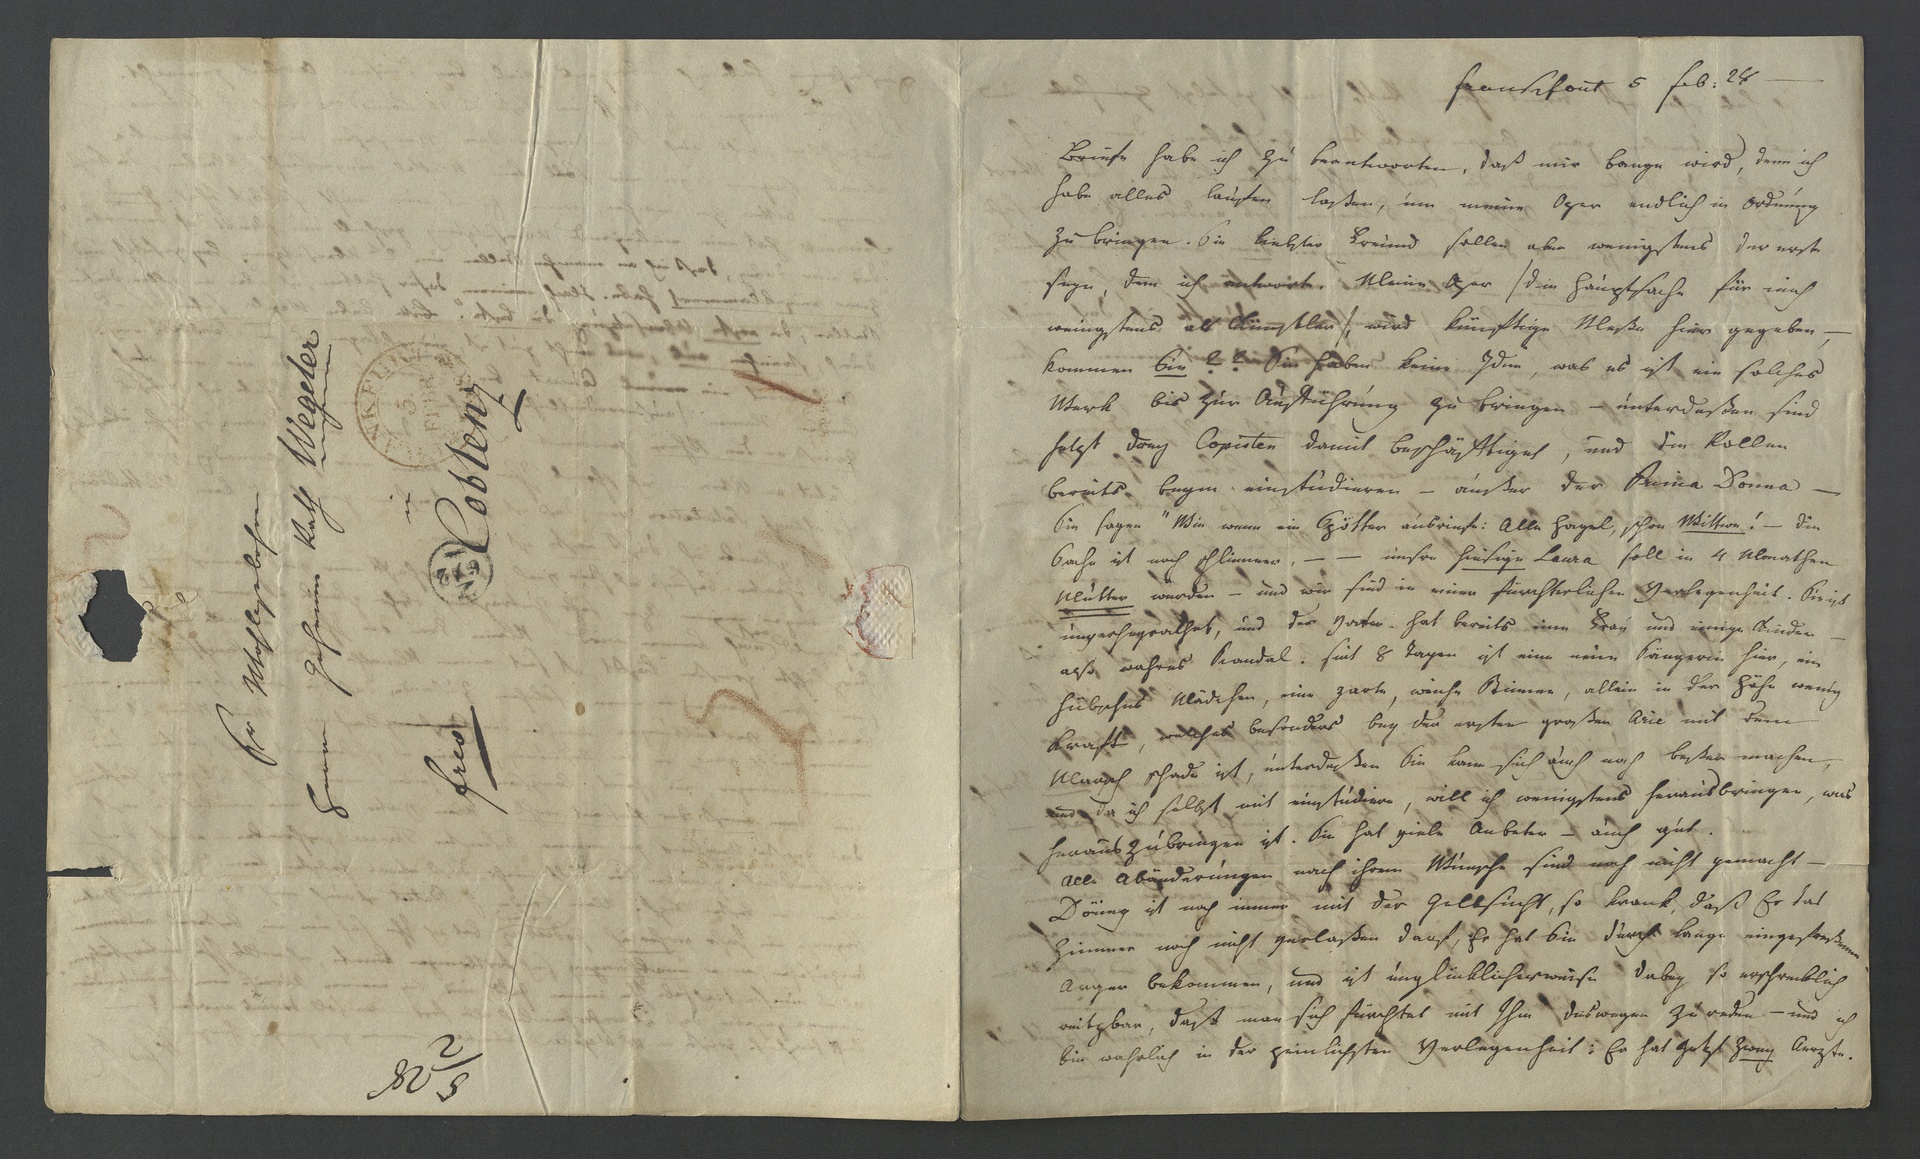 Sr Wohlgebohrn
Herrn Geheim Rath Wegeler
in
Coblenz
frco
Frankfourt 5 feb: 28
Briefe habe ich zu beantworten, daß mir bange wird, denn ich
habe alles laufen laßen, um meine Oper endlich in Ordnung
zu bringen. Sie liebster Freund sollen aber wenigstens der erste
seyn, dem ich antworte. Meine Oper /:die Hauptsache für mich
wenigstens als Künstler:/ wird künftige Meße hier gegeben —
kommen Sie?? Sie haben keine Idee, was es ist ein solches
Werk bis zur Aufführung zu bringen – unterdeßen sind
jetzt drey Copisten damit beschäfftiget, und die Rollen
bereits beym einstudieren – außer der Prima Donna —
Sie sagen "Wie wenn ein Spötter ausriefe: Alle Hagel, schon Wittwe! – die
Sache ist noch schlimmer, – – unsre hiesige Laura soll in 4 Monathen
Mutter werden – und wir sind in einer fürchterlichen Verlegenheit. Sie ist
unverheyrathet, und der Vater hat bereits eine Frau und einige Kinder –
also wahres Skandal. seit 8 Tagen ist eine neue Sängerin hier, ein
hübsches Mädchen, eine zarte, weiche Stimme, allein in der Höhe wenig
Kraft, welches besonders bey der ersten großen Arie mit dem
Marsch schade ist, unterdeßen Sie kann sich auch noch beßer machen,
und da ich selbst mit einstudiere, will ich wenigstens herausbringen, was
herauszubringen ist. Sie hat viele Anbeter – auch gut.
alle Abänderungen nach ihrem Wunsche sind noch nicht gemacht –
Döring ist noch immer mit der Gelbsucht, so krank, daß Er das
Zimmer noch nicht verlaßen darf, Er hat Sie durch lange eingefreßenen
Arger bekommen, und ist unglücklicherweise dabey so erschrecklich
reitzbar, daß man sich fürchtet mit Ihm deswegen zu reden – und ich
bin wahrlich in der peinlichsten Verlegenheit: Er hat jetzt zwey Aerzte.